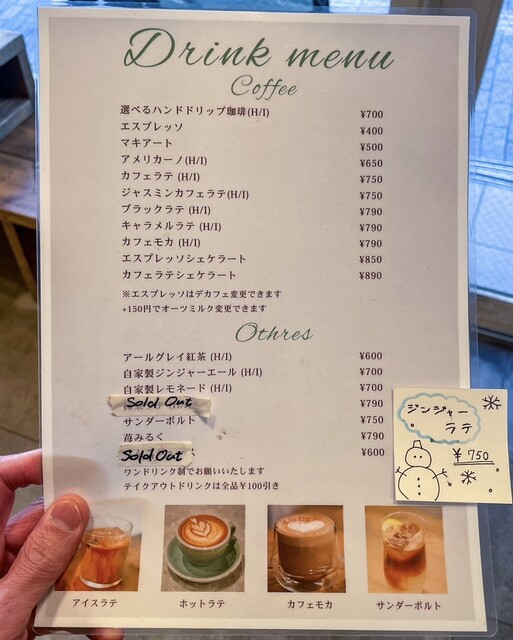 Drink menu
Coffee
選べるハンドドリップ珈琲(H/I) ¥700
エスプレッソ ¥400
マキアート ¥500
アメリカーノ(H/I) ¥650
カフェラテ (H/I) ¥750
ジャスミンカフェラテ(H/I) ¥750
ブラックラテ (H/I) ¥790
キャラメルラテ (H/I) ¥790
カフェモカ (H/I) ¥790
エスプレッソシェケラート ¥850
カフェラテシェケラート ¥890
※エスプレッソはデカフェ変更できます
+150円でオーツミルク変更できます
Othres
アールグレイ紅茶 (H/I) ¥600
自家製ジンジャーエール (H/I) ¥700
自家製レモネード (H/I) ¥700
Sold Out ¥790
サンダーボルト ¥750
苺みるく ¥790
Sold Out ¥600
ワンドリンク制でお願いいたします
テイクアウトドリンクは全品¥100引き
ジンジャー
ラテ
¥750
アイスラテ
ホットラテ
カフェモカ
サンダーボルト